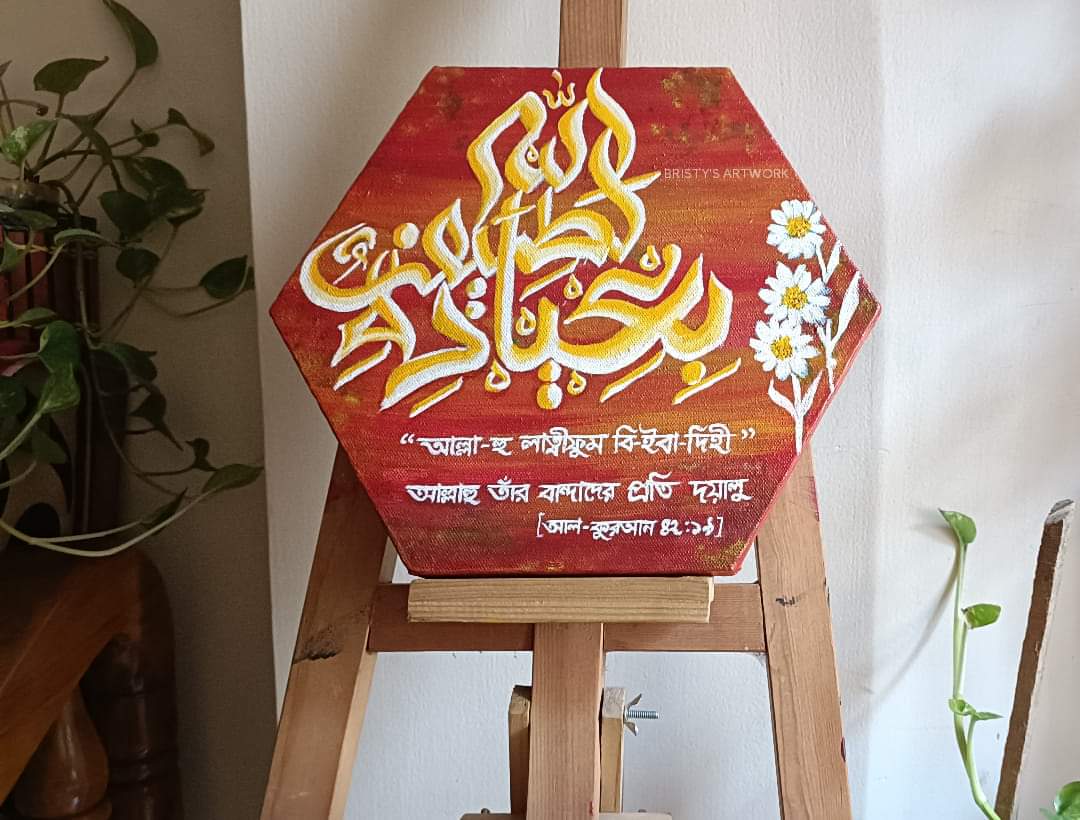 الله لطيف
بعباده
BRISTY'S ARTWORK
“আল্লা-হু লাত্বীফুম বি-ইবা-দিহী”
আল্লাহু তাঁর বান্দাদের প্রতি দয়ালু
[আল-কুরআন ৪২:১৯]